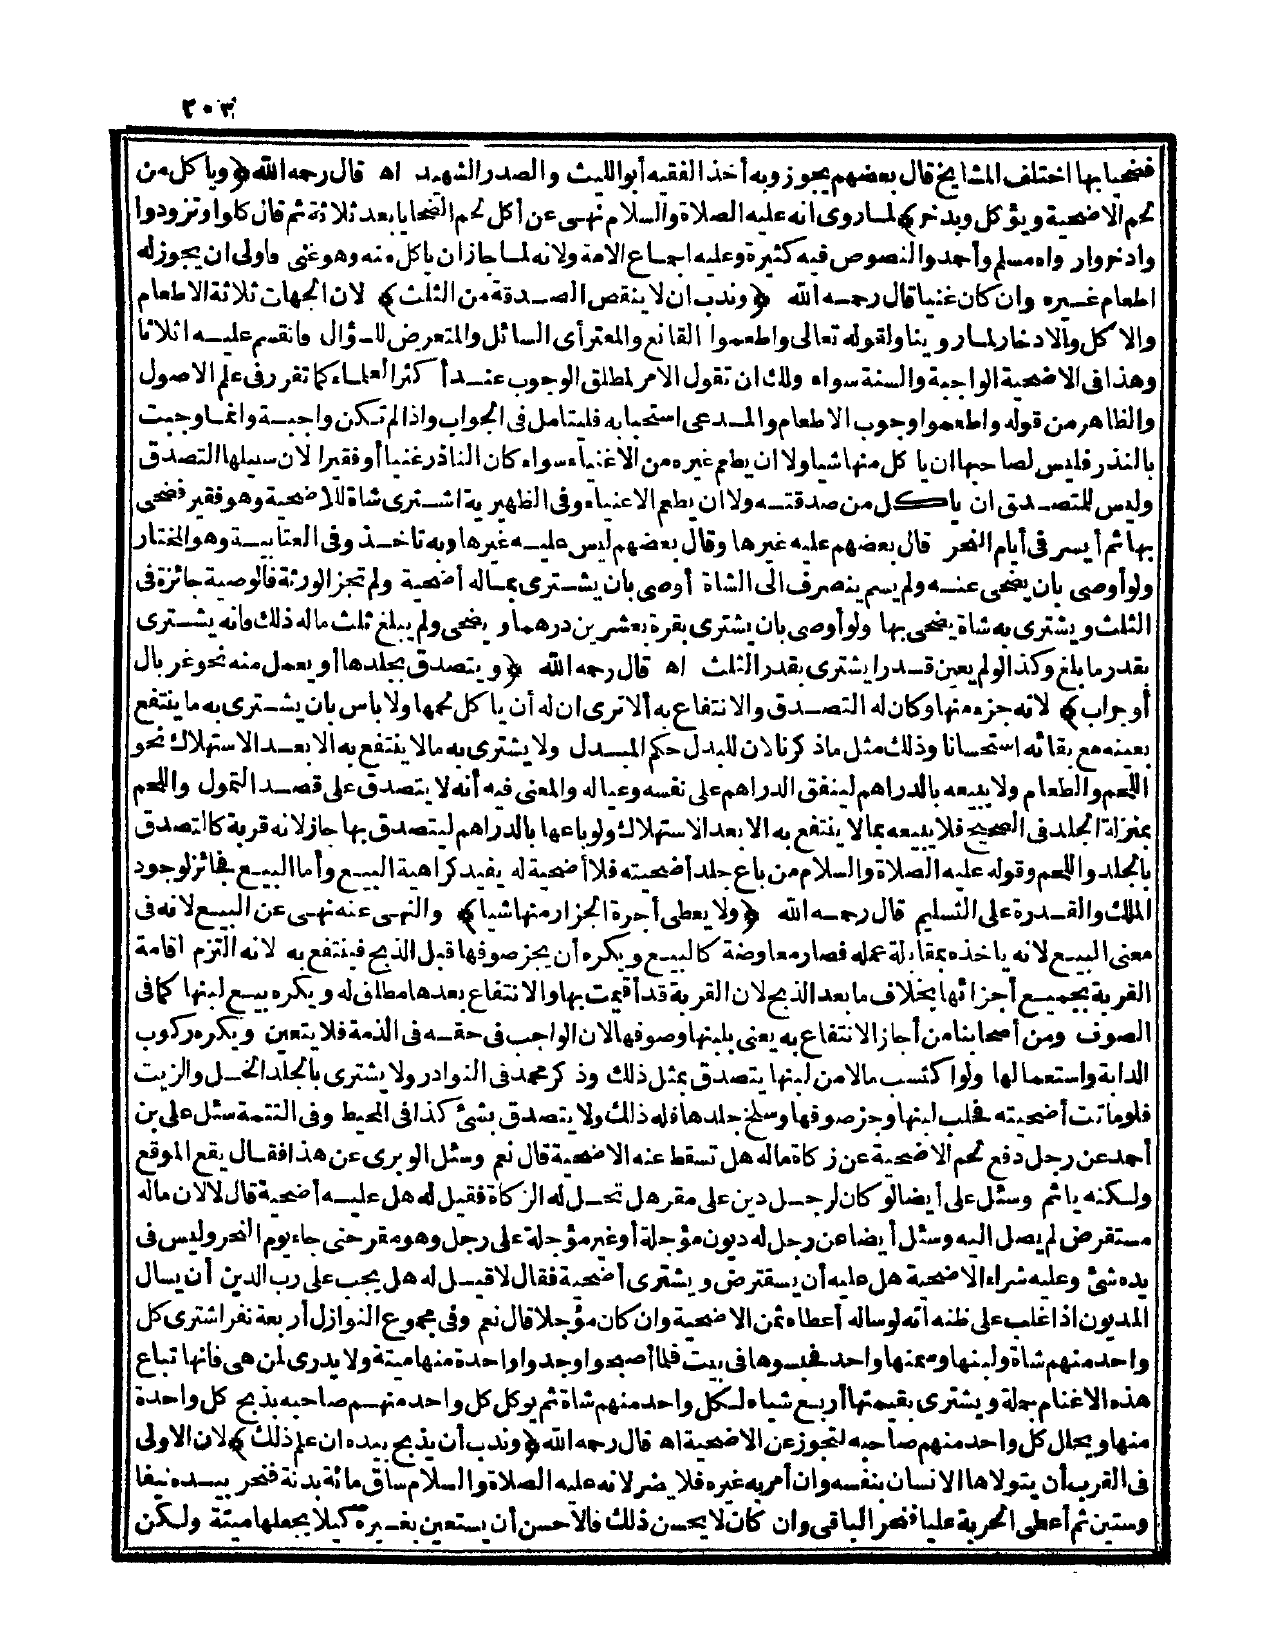 ٢٠٣
فضحيا بها اختلف المشايخ قال بعضهم يجوز وبه أخذ الفقيه أبو الليث والصدر الشهيد اه قال رحمه الله ﴿ ويأكل من
لحم الاضحية ويؤكل ويدخر ﴾ لما روى انه عليه الصلاة والسلام نهى عن أكل لحم الضحايا بعد ثلاثة ثم قال كلوا وتزودوا
وادخروا رواه مسلم وأحمد والنصوص فيه كثيرة وعليه اجماع الامة ولانه لما جاز ان يأكل منه وهو غنى فاولى ان يجوز له
اطعام غيره وان كان غنيا قال رحمه الله ﴿ وندب ان لا ينقص الصدقة من الثلث ﴾ لان الجهات ثلاثة الاطعام
والاكل والادخار لما روينا ولقوله تعالى واطعموا القانع والمعتر أى السائل والمتعرض للسؤال فانقسم عليه اثلاثا
وهذا فى الاضحية الواجبة والسنة سواء ولك ان تقول الامر لمطلق الوجوب عند أكثر العلماء كما تقرر فى علم الاصول
والظاهر من قوله واطعموا وجوب الاطعام والمدعى استحبابه فليتامل فى الجواب واذا لم تكن واجبة وانما وجبت
بالنذر فليس لصاحبها ان ياكل منها شيا ولا ان يطعم غيره من الاغنياء سواء كان الناذر غنيا أو فقيرا لان سبيلها التصدق
وليس للمتصدق ان ياكل من صدقته ولا ان يطعم الاغنياء وفى الظهيرية اشترى شاة للاضحية وهو فقير فضحى
بها ثم أيسر فى أيام النحر قال بعضهم عليه غيرها وقال بعضهم ليس عليه غيرها وبه ناخذ وفى العتابية وهو المختار
ولو أوصى بان يضحى عنه ولم يسم ينصرف الى الشاة أوصى بان يشترى بماله أضحية ولم تجز الورثة فالوصية جائزة فى
الثلث ويشترى به شاة يضحى بها ولو أوصى بان يشترى بقرة بعشرين درهما ويضحى ولم يبلغ ثلث ماله ذلك فانه يشترى
بقدر ما بلغ وكذا لو لم يعين قدرا يشترى بقدر الثلث اه قال رحمه الله ﴿ ويتصدق بجلدها أو يعمل منه نحو غربال
أو جراب ﴾ لانه جزء منها وكان له التصدق والانتفاع به ألا ترى ان له أن ياكل لحمها ولا باس بان يشترى به ما ينتفع
بعينه مع بقائه استحسانا وذلك مثل ما ذكرنا لان للبدل حكم المبدل ولا يشترى به مالا ينتفع به الا بعد الاستهلاك نحو
اللحم والطعام ولا يبيعه بالدراهم لينفق الدراهم على نفسه وعياله والمعنى فيه أنه لا يتصدق على قصد التمول واللحم
بمنزلة الجلد فى الصحيح فلا يبيعه بما لا ينتفع به الا بعد الاستهلاك ولو باعها بالدراهم ليتصدق بها جاز لانه قربة كالتصدق
بالجلد واللحم وقوله عليه الصلاة والسلام من باع جلد أضحيته فلا أضحية له يفيد كراهية البيع وأما البيع فجائز لوجود
الملك والقدرة على التسليم قال رحمه الله ﴿ ولا يعطى أجرة الجزار منها شيا ﴾ والنهى عنه نهى عن البيع لانه فى
معنى البيع لانه ياخذه بمقابلة عمله فصار معاوضة كالبيع ويكره أن يجز صوفها قبل الذبح فينتفع به لانه التزم اقامة
القربة بجميع أجزائها بخلاف ما بعد الذبح لان القربة قد أقيمت بها والانتفاع بعدها مطلق له ويكره بيع لبنها كما فى
الصوف ومن أصحابنا من أجاز الانتفاع به يعنى بلبنها وصوفها لان الواجب فى حقه فى الذمة فلا يتعين ويكره ركوب
الدابة واستعمالها ولو اكتسب مالا من لبنها يتصدق بمثل ذلك وذكر محمد فى النوادر ولا يشترى بالجلد الخل والزيت
فلو ماتت أضحيته فحلب لبنها وجز صوفها وسلخ جلدها فله ذلك ولا يتصدق بشئ كذا فى المحيط وفى التتمة سئل على بن
أحمد عن رجل دفع لحم الاضحية عن زكاة ماله هل تسقط عنه الاضحية قال نعم وسئل الوبرى عن هذا فقال يقع الموقع
ولكنه ياثم وسئل على أيضا لو كان لرجل دين على مقر هل تحل له الزكاة فقيل له هل عليه أضحية قال لا لان ماله
مستقرض لم يصل اليه وسئل أيضا عن رجل له ديون مؤجلة أو غير مؤجلة على رجل وهو مقر حتى جاء يوم النحر وليس فى
يده شئ وعليه شراء الاضحية هل عليه أن يستقرض ويشترى أضحية فقال لا قيل له هل يجب على رب الدين أن يسال
المديون اذا غلب على ظنه انه لو ساله أعطاه ثمن الاضحية وان كان مؤجلا قال نعم وفى مجموع النوازل أربعة نفر اشترى كل
واحد منهم شاة ولبنها وسمنها واحد فحبسوها فى بيت فلما أصبحوا وجدوا واحدة منها ميتة ولا يدرى لمن هى فانها تباع
هذه الاغنام جملة ويشترى بقيمتها أربع شياه لكل واحد منهم شاة ثم يوكل كل واحد منهم صاحبه بذبح كل واحدة
منها ويحال كل واحد منهم صاحبه لتجوز عن الاضحية اه قال رحمه الله ﴿ وندب أن يذبح بيده ان علم ذلك ﴾ لان الاولى
فى القرب أن يتولاها الانسان بنفسه وان أمر به غيره فلا يضر لانه عليه الصلاة والسلام ساق مائة بدنة فنحر بيده نيفا
وستين ثم أعطى الحربة عليا فنحر الباقى وان كان لا يحسن ذلك فالاحسن أن يستعين بغيره كيلا يجعلها ميتة ولكن